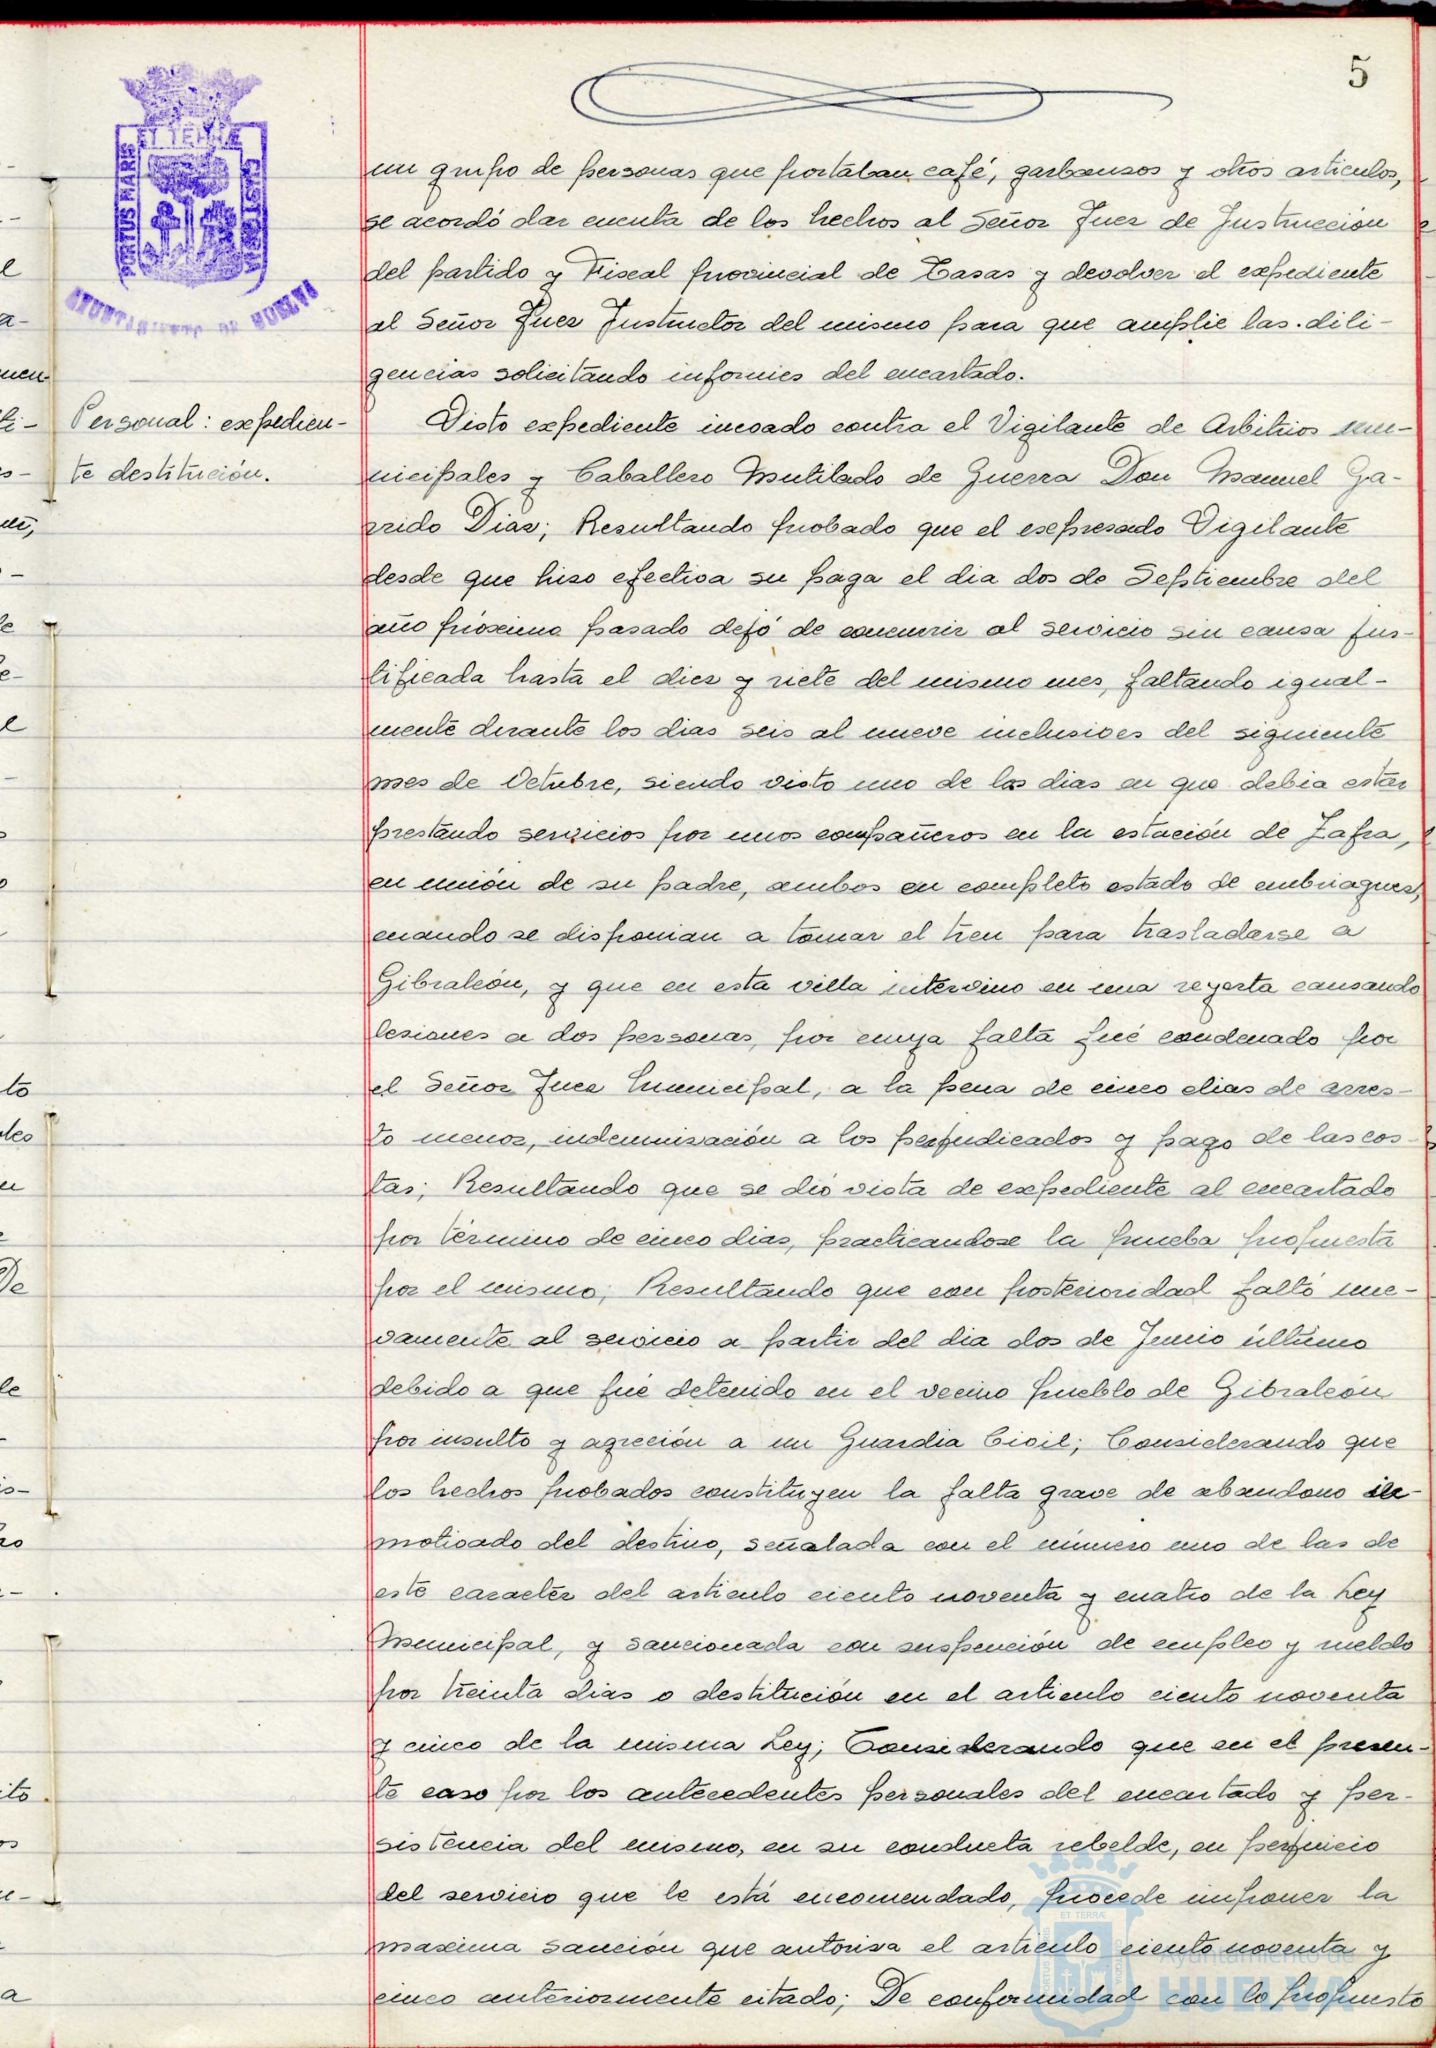 5
PORTUS MARIS
ET TERRÆ
CUSTODIA
AYUNTAMIENTO DE HUELVA
un grupo de personas que portaban café, garbansos y otros articulos,
se acordó dar cuenta de los hechos al Señor Juez de Instrucción
del partido y Fiscal provincial de Tasas y devolver el expediente
al Señor Juez Instructor del mismo para que amplie las dili-
gencias solicitando informes del encartado.
Personal: expedien-
te destitución.
Visto expediente incoado contra el Vigilante de Arbitrios mu-
nicipales y Caballero Mutilado de Guerra Don Manuel Ga-
rrido Dias; Resultando probado que el esepresado Vigilante
desde que hiso efectiva su paga el dia dos de Septiembre del
año próximo pasado dejó de concurrir al servicio sin causa jus-
tificada hasta el diez y siete del mismo mes, faltando igual-
mente durante los dias seis al nueve inclusives del siguiente
mes de Octubre, siendo visto uno de los dias en que debia estar
prestando servicios por unos compañeros en la estación de Zafra,
en unión de su padre, ambos en completo estado de embriagues,
cuando se disponian a tomar el tren para trasladarse a
Gibraleón, y que en esta villa intervino en una reyerta causando
lesiones a dos personas, por cuya falta fué condenado por
el Señor Juez Municipal, a la pena de cinco dias de arres-
to menor, indemnisación a los perjudicados y pago de las cos-
tas; Resultando que se dió vista de expediente al encartado
por término de cinco dias, practicandose la prueba propuesta
por el mismo; Resultando que con posterioridad faltó nue-
vamente al servicio a partir del dia dos de Junio último
debido a que fué detenido en el vecino pueblo de Gibraleón
por insulto y agreción a un Guardia Civil; Considerando que
los hechos probados constituyen la falta grave de abandono in-
motivado del destino, señalada con el número uno de las de
este caracter del articulo ciento noventa y cuatro de la Ley
Municipal, y sancionada con suspención de empleo y sueldo
por treinta dias o destitución en el articulo ciento noventa
y cinco de la misma Ley; Considerando que en el presen-
te caso por los antecedentes personales del encartado y per-
sistencia del mismo, en su conducta rebelde, en perjuicio
del servicio que le está encomendado, procede imponer la
maxima sanción que autorisa el articulo ciento noventa y
cinco anteriormente citado; De conformidad con lo propuesto
Ayuntamiento de
HUELVA